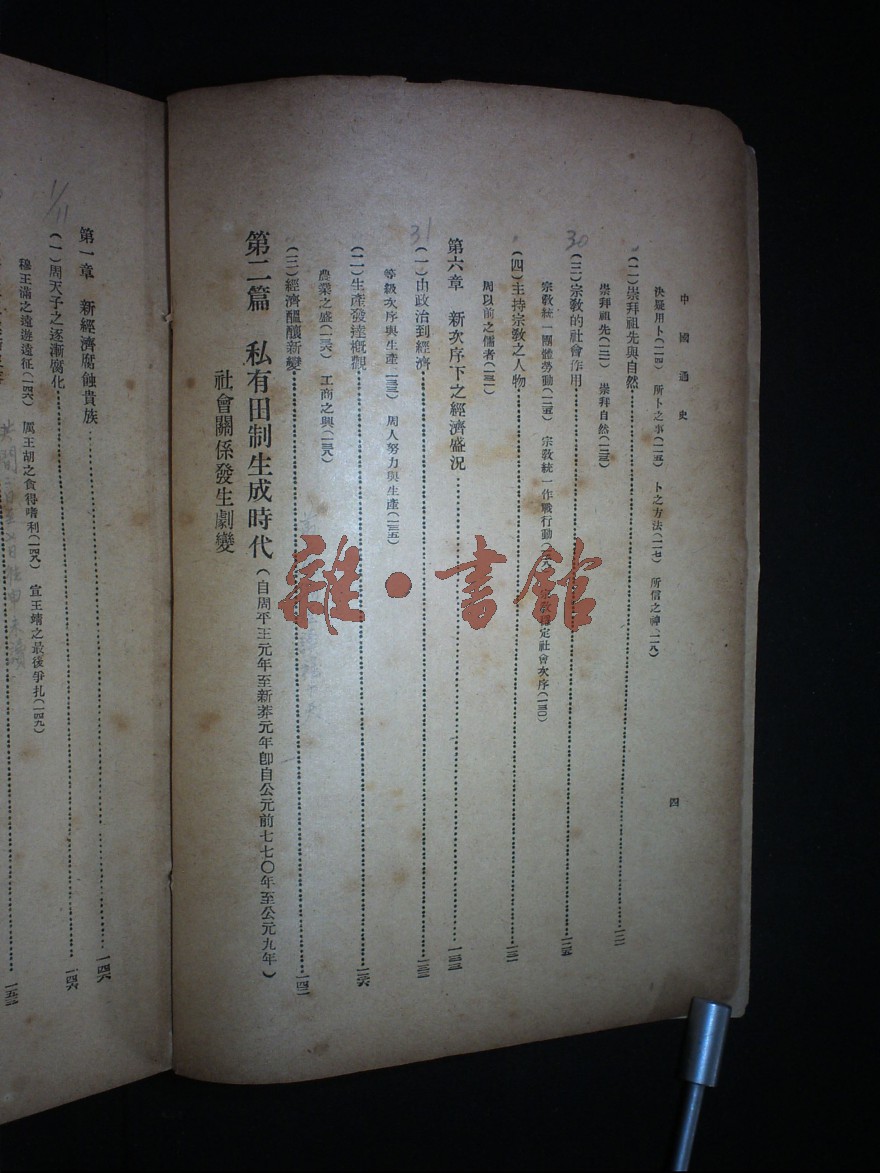 中國通史
四
決疑用卜(一一四) 所卜之事(一一五) 卜之方法(一一七) 所信之神(一一八)
崇拜祖先與自然
崇拜祖先 崇拜自然
(三)宗教的社會作用
宗教統一團體勞動 宗教統一作戰行動 定社會次序(一三〇)
(四)主持宗教之人物
周以前之儒者
第六章 新次序下之經濟盛況
(一)由政治到經濟
等級次序與生產 周人努力與生產
(二)生產發達概觀
農業之盛 工商之興
(三)經濟醞釀新變
第二篇 私有田制生成時代(自周平王元年至新莽元年卽自公元前七七〇年至公元九年)
社會關係發生劇變
第一章 新經濟腐蝕貴族 一四六
(一)周天子之逐漸腐化 一四六
穆王滿之遠遊遠征(一四六) 厲王胡之貪得嗜利(一四八) 宣王靖之最後爭扎(一四九)
30
31
1/11
雜·書館